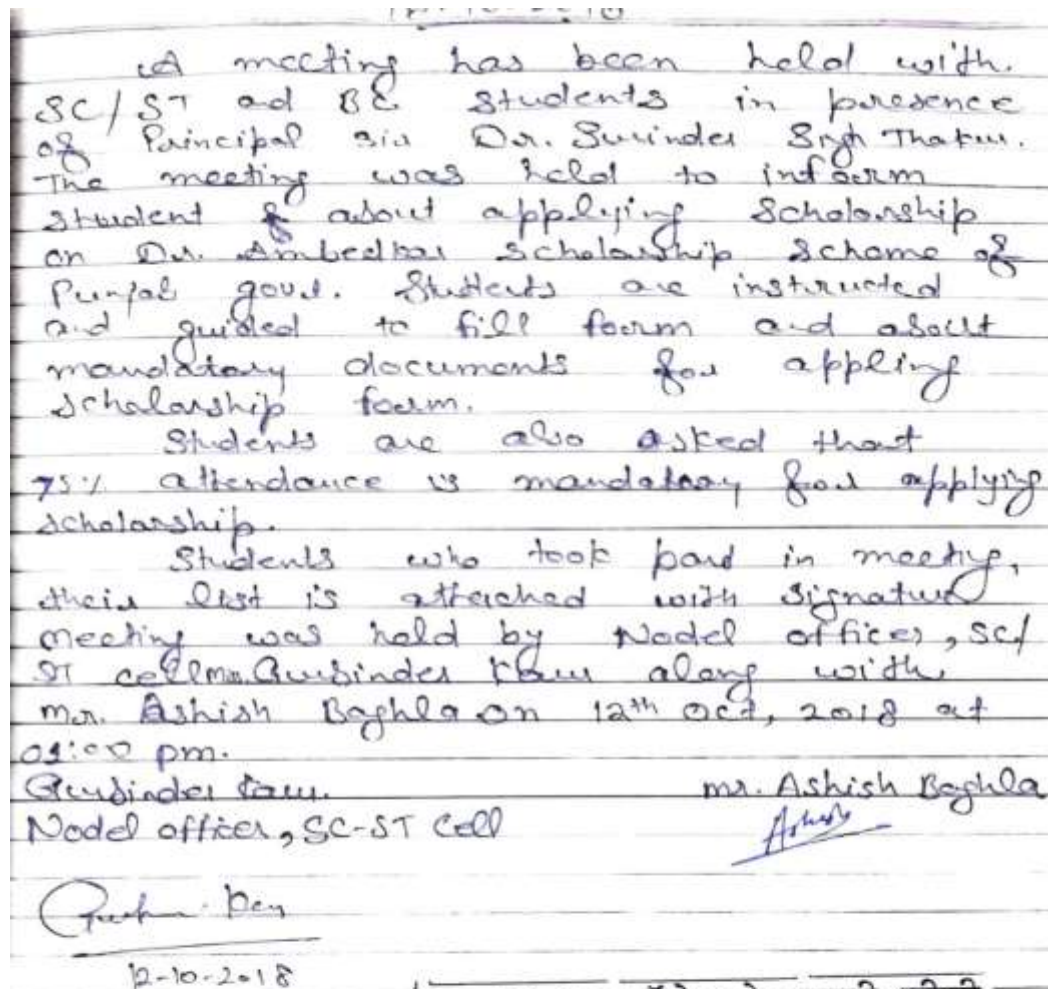 A meeting has been held with.
SC/ST ad BC students in presence
of Principal sir Dr. Surinder Sigh Thakur.
The meeting was held to inform
student about applying Scholarship
on Dr. Ambedkar Scholarship Scheme of
Punjab govt. Students are instructed
and guided to fill form and about
mandatory documents for appling
scholarship form.
Students are also asked that
75% attendance is mandatory for applying
scholarship.
Students who took part in meeting,
their list is attached with signature
meeting was held by Nodel officer, SC/
ST cell Gurbinder Kaur along with
mr. Ashish Baghla on 12th Oct, 2018 at
pm.
Gurbinder Kaur. mr. Ashish Baghla
Nodel officer, SC-ST Cell
12-10-2018